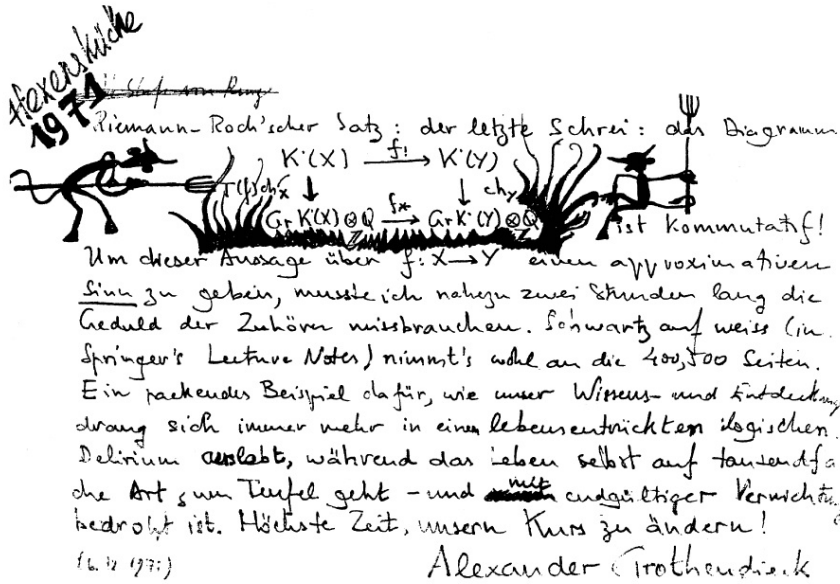 Hexenküche
1971
Riemann-Roch'scher Satz: der letzte Schrei: das Diagramm
K˙(X) f! K˙(Y)
T(f)ch_X ch_Y
Gr K˙(X) ⊗_Z Q f* Gr K˙(Y) ⊗_Z Q
ist kommutatif!
Um dieser Aussage über f: X → Y einen approximativen
Sinn zu geben, musste ich nahezu zwei Stunden lang die
Geduld der Zuhörer missbrauchen. Schwartz auf weiss (in
Springer's Lecture Notes) nimmt's wohl an die 400, 500 Seiten.
Ein packendes Beispiel dafür, wie unser Wissens- und Entdeckungs
drang sich immer mehr in einem lebensentrückten logischen
Delirium auslebt, während das Leben selbst auf tausendfa
che Art zum Teufel geht - und mit endgültiger Vernichtung
bedroht ist. Höchste Zeit, unsern Kurs zu ändern!
Alexander Grothendieck